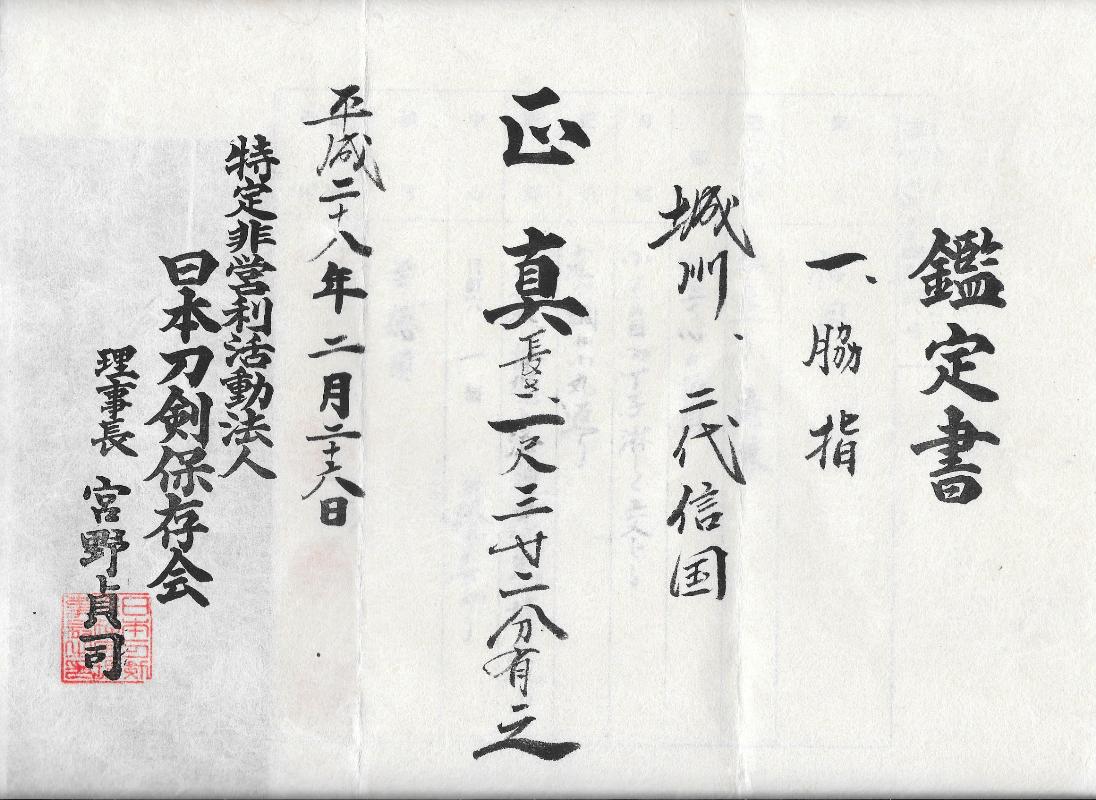 鑑定書
一、脇指
城州、二代信国
正真 長サ一尺三寸二分有之
平成二十八年二月二十六日
特定非営利活動法人
日本刀剣保存会
理事長 宮野貞司